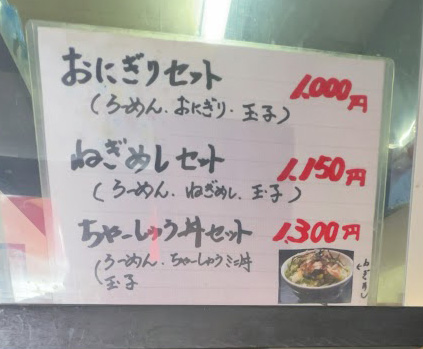 おにぎりセット 1,000円
(らーめん、おにぎり、玉子)
ねぎめしセット 1,150円
(らーめん、ねぎめし、玉子)
ちゃーしゅう丼セット 1,300円
(らーめん、ちゃーしゅうミニ丼
玉子
ねぎめし